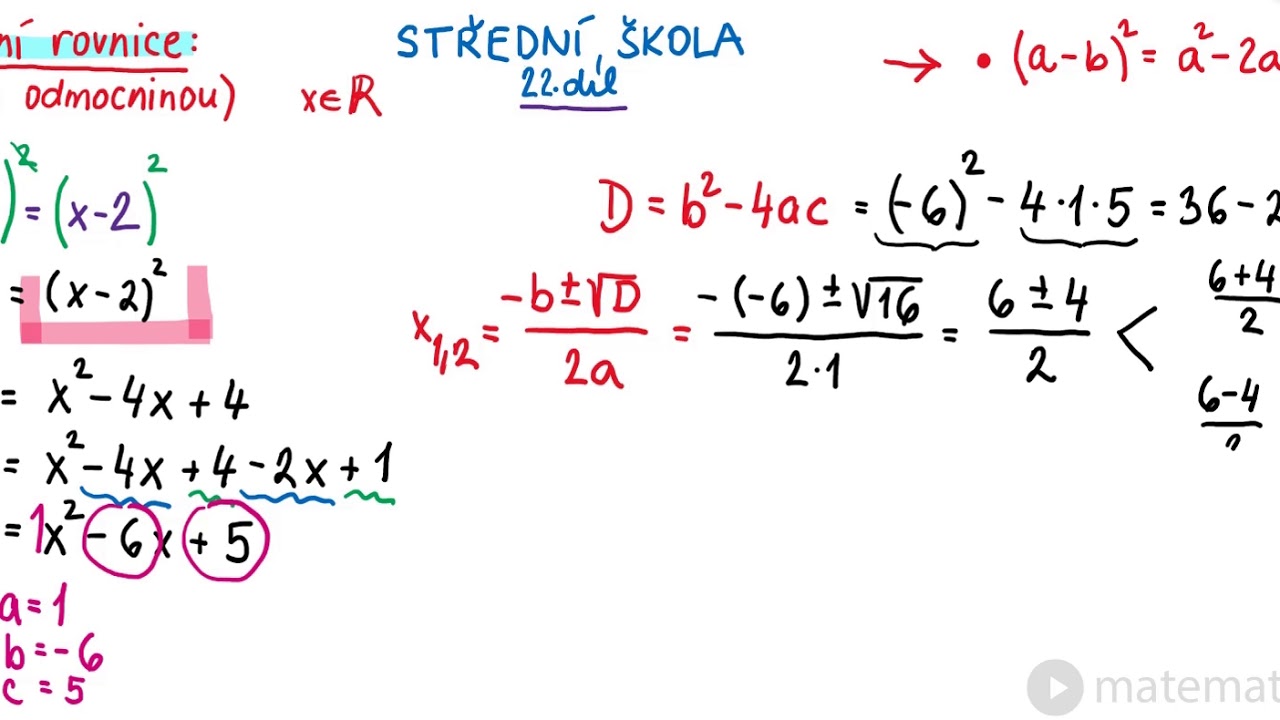 ní rovnice:
odmocninou) x∈ℝ
STŘEDNÍ ŠKOLA
22.díl
→ • (a-b)² = a² - 2a
)² = (x-2)²
= (x-2)²
= x² - 4x + 4
= x² - 4x + 4 - 2x + 1
= 1x² - 6x + 5
a = 1
b = -6
c = 5
D = b² - 4ac = (-6)² - 4·1·5 = 36 - 2
x₁,₂ = (-b ± √D)/(2a) = (-(-6) ± √16)/(2·1) = (6 ± 4)/2 <
(6+4)/2
(6-4)/2
matemat